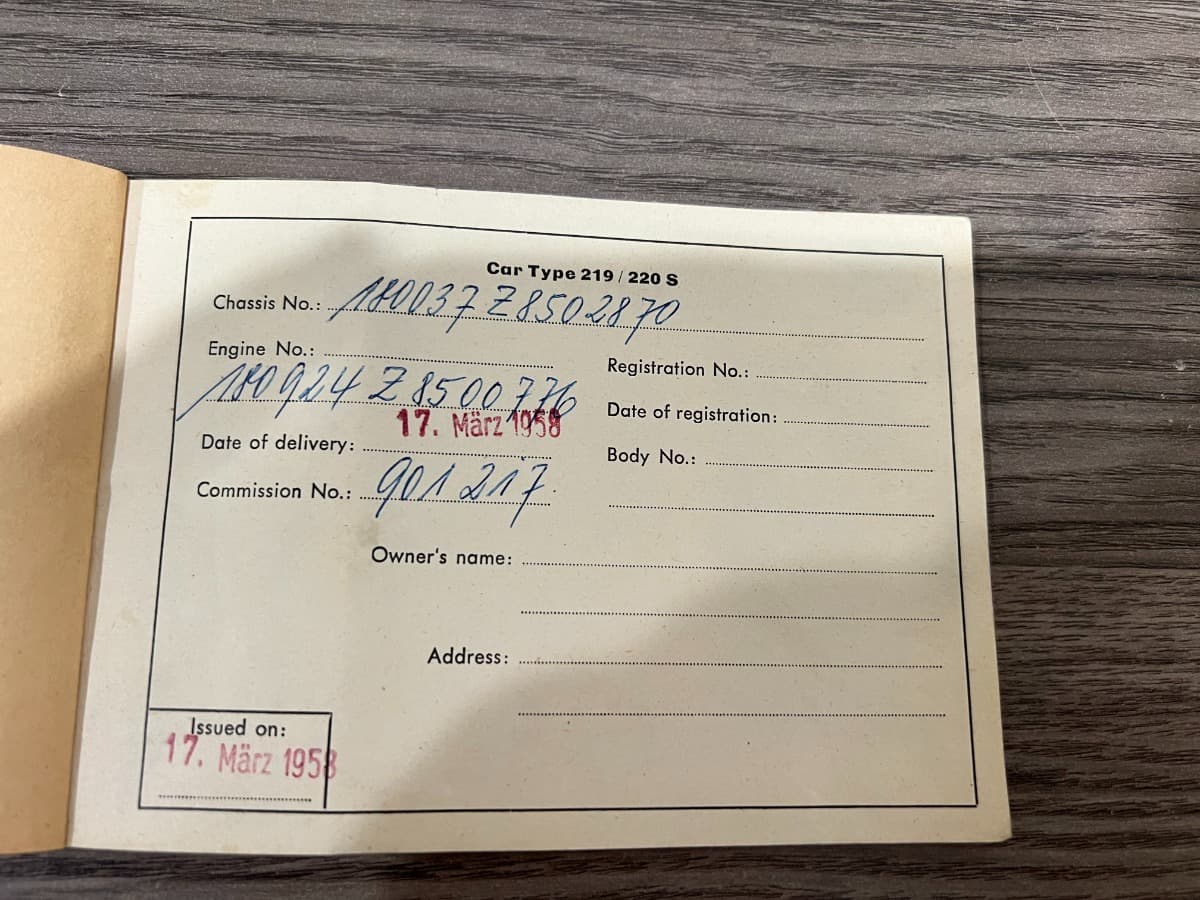 Car Type 219 / 220 S
Chassis No.: 180037 Z8502870
Engine No.:
180924 Z 8500776
Registration No.:
17. März 1958
Date of registration:
Date of delivery:
Body No.:
Commission No.: 901217
Owner's name:
Address:
Issued on:
17. März 1958